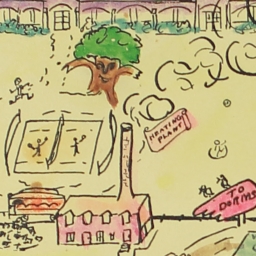 HEATING
PLANT
TO
DORMS